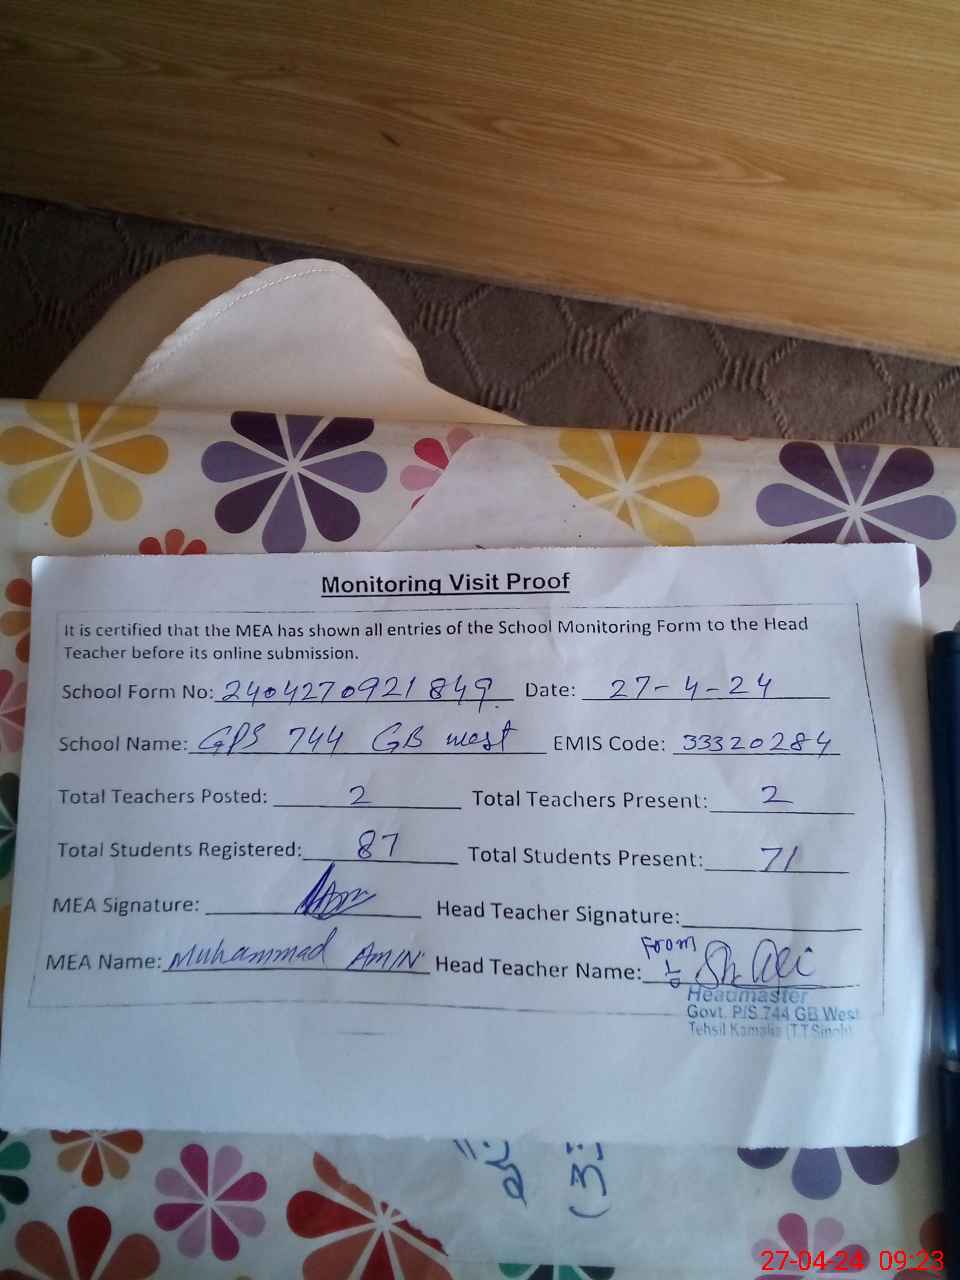 Monitoring Visit Proof
It is certified that the MEA has shown all entries of the School Monitoring Form to the Head
Teacher before its online submission.
School Form No: 2404270921849 Date: 27-4-24
School Name: GPS 744 GB west EMIS Code: 33320284
Total Teachers Posted: 2 Total Teachers Present: 2
Total Students Registered: 87 Total Students Present: 71
MEA Signature: Head Teacher Signature:
MEA Name: Muhammad AMIN Head Teacher Name: From
Headmaster
Govt. P/S 744 GB West
Tehsil Kamalia (T.T.Singh)
27-04-24 09:23